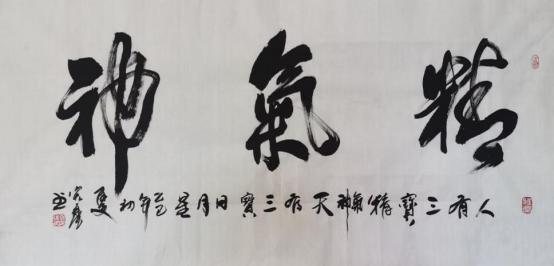 精氣神
人有三寶精氣神天有三寶日月星乙巳年初夏
书